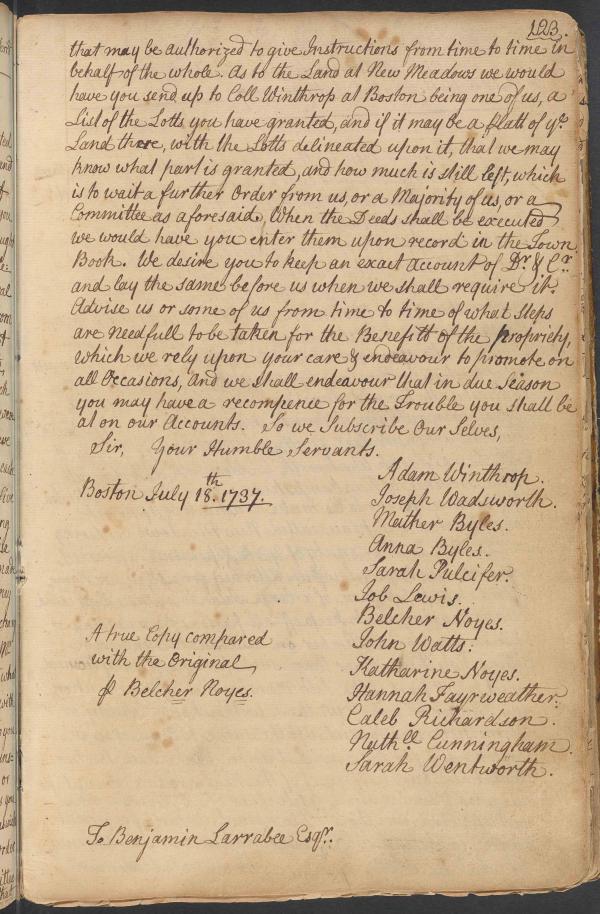 123.
that may be authorized to give Instructions from time to time in
behalf of the whole. As to the Land at New Meadows we would
have you send up to Coll Winthrop at Boston being one of us, a
List of the Lotts you have granted, and if it may be a platt of ye.
Land there, with the Lotts delineated upon it, that we may
know what part is granted, and how much is still left, which
is to wait a further Order from us, or a Majority of us, or a
Committee as aforesaid. When the Deeds shall be executed
we would have you enter them upon record in the Town
Book. We desire you to keep an exact Account of Dr. & Cr.
and lay the same before us when we shall require it.
Advise us or some of us from time to time of what steps
are needfull to be taken for the Benefitt of the propriety,
which we rely upon your care & endeavour to promote on
all Occasions, and we shall endeavour that in due Season
you may have a recompence for the Trouble you shall be
at on our Accounts. So we Subscribe Our Selves,
Sir, Your Humble Servants.
Adam Winthrop.
Boston July 18.th 1737.
Joseph Wadsworth.
Mather Byles.
Anna Byles.
Sarah Pulcifer.
Job Lewis.
Belcher Noyes.
A true Copy compared
John Watts.
with the Original
Katharine Noyes.
⅌ Belcher Noyes.
Hannah Fayrweather.
Caleb Richardson.
Nath.ll Cunningham.
Sarah Wentworth.
To Benjamin Larrabee Esqr.